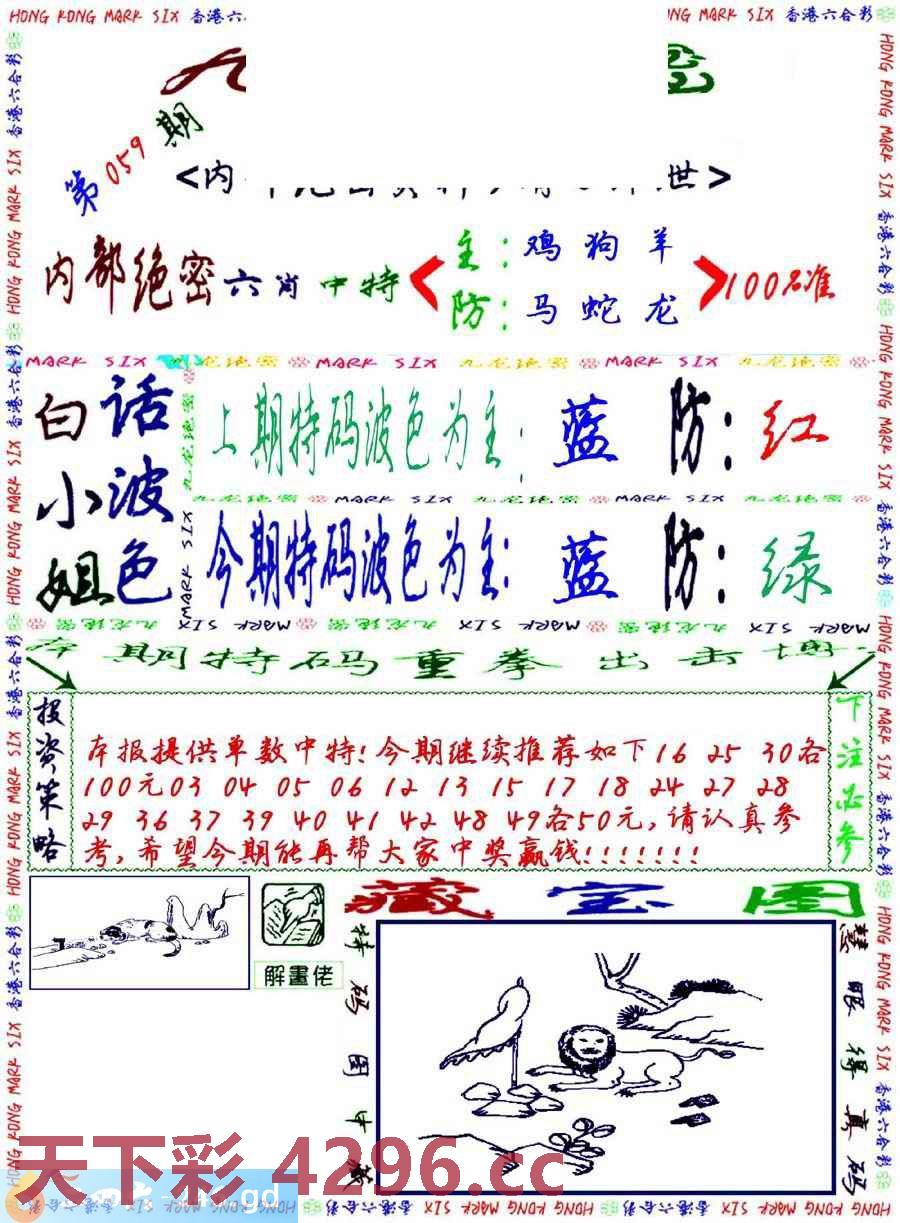 HONG KONG MARK SIX 香港六合彩
第059期
<内
世>
内部绝密六肖中特
主：鸡狗羊
防：马蛇龙
100%准
MARK SIX 九龙绝密 MARK SIX 九龙绝密 MARK SIX 九龙绝密
白话
小波
姐色
上期特码波色为主：蓝 防：红
九龙绝密 MARK SIX 九龙绝密 MARK SIX 九龙绝密
今期特码波色为主：蓝 防：绿
九龙绝密 MARK SIX 九龙绝密 MARK SIX 九龙绝密 MARK SIX
本期特码重拳出击
投资策略
本报提供单数中特!今期继续推荐如下16 25 30各
100元03 04 05 06 12 13 15 17 18 24 27 28
29 36 37 39 40 41 42 48 49各50元,请认真参
考,希望今期能再帮大家中奖赢钱!!!!!!!
下注必参
藏宝图
解畫佬
特码图中藏
慧眼得真码
天下彩 4296.cc
gd